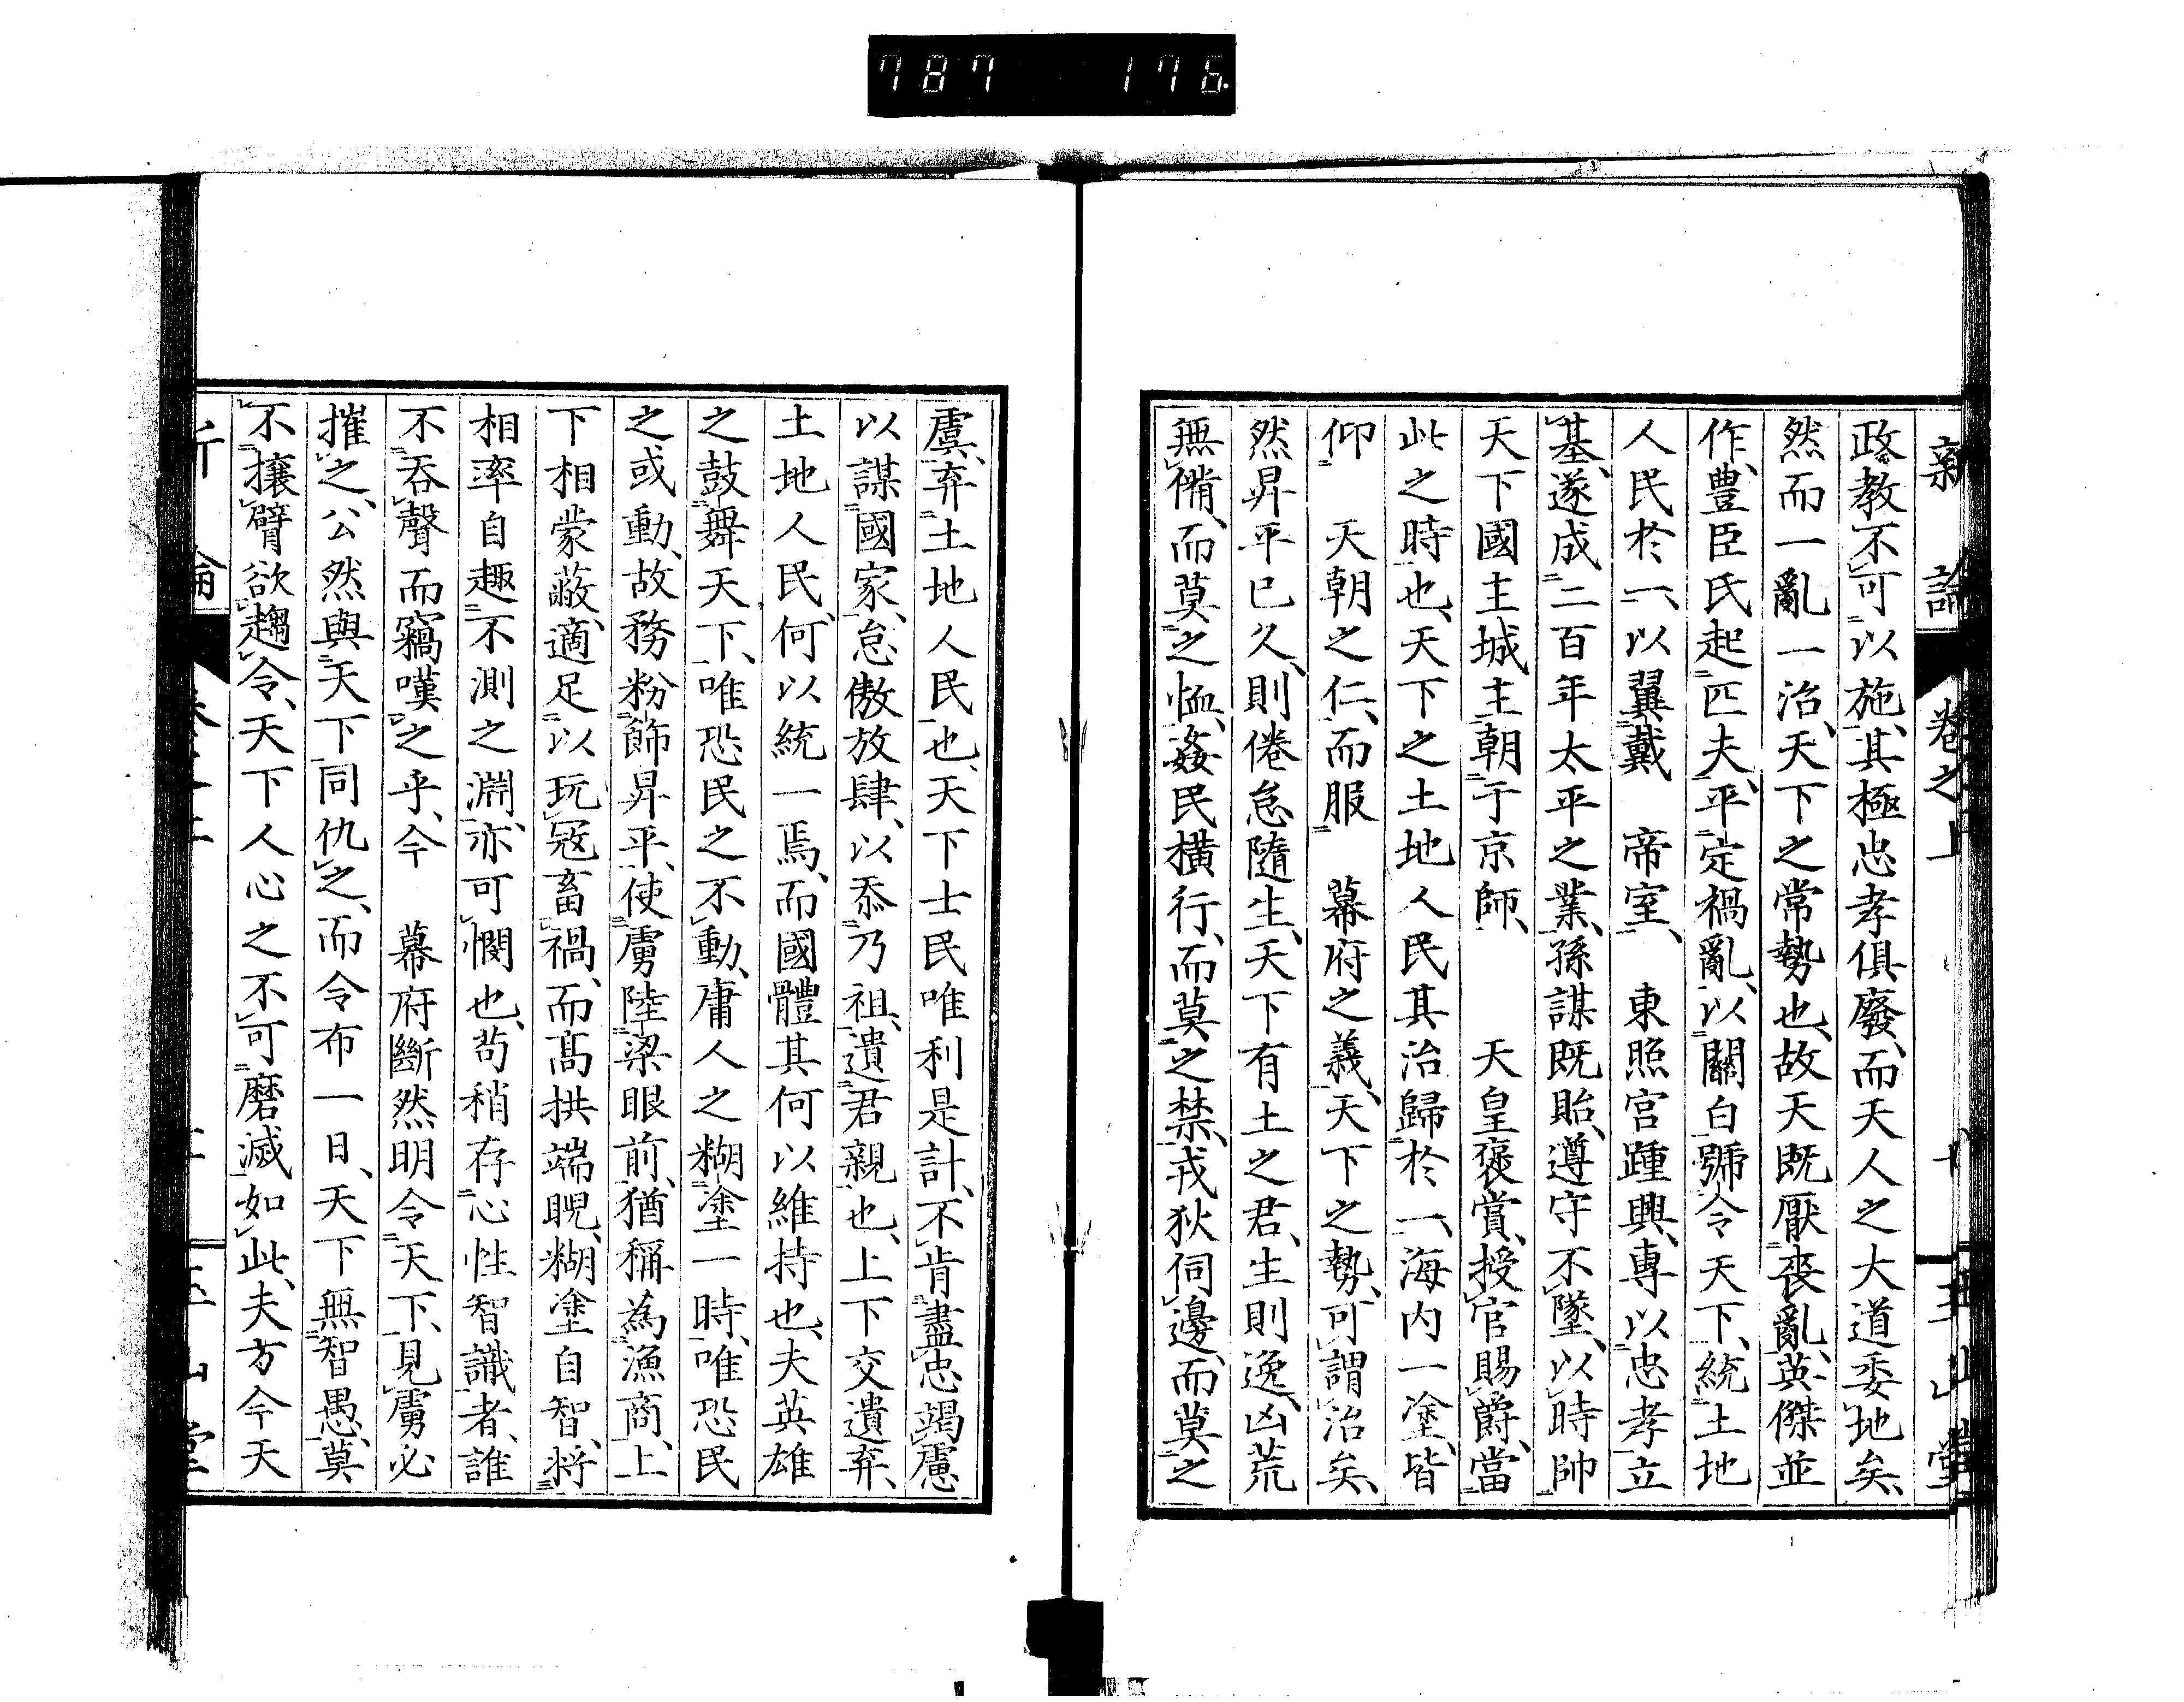 787 176.
新論 卷之上 玉山堂
政教不可以施、其極忠孝俱廢、而天人之大道委地矣、
然而一亂一治、天下之常勢也、故天既厭喪亂、英傑並
作、豊臣氏起匹夫、平定禍亂、以關白號令天下、統土地
人民於一、以翼戴 帝室、 東照宮踵興、專以忠孝立
基、遂成二百年太平之業、孫謀既貽、遵守不墜、以時帥
天下國主城主朝于京師、 天皇褒賞、授官賜爵、當
此之時也、天下之土地人民其治歸於一、海內一塗、皆
仰 天朝之仁、而服 幕府之義、天下之勢、可謂治矣、
然昇平已久、則倦怠隨生、天下有土之君、生則逸、凶荒
無備、而莫之恤、姦民橫行、而莫之禁、戎狄伺邊、而莫之
虞、弃土地人民也、天下士民唯利是計、不肯盡忠竭慮
以謀國家、怠傲放肆、以忝乃祖、遺君親也、上下交遺弃、
土地人民、何以統一焉、而國體其何以維持也、夫英雄
之鼓舞天下、唯恐民之不動、庸人之糊塗一時、唯恐民
之或動、故務粉飾昇平、使虜陸梁眼前、猶稱為漁商、上
下相蒙蔽、適足以玩寇畜禍、而高拱端睨、糊塗自智、將
相率自趣不測之淵、亦可憫也、苟稍存心性智識者、誰
不吞聲而竊嘆之乎、今 幕府斷然明令天下、見虜必
摧之、公然與天下同仇之、而令布一日、天下無智愚、莫
不攘臂欲趨令、天下人心之不可磨滅如此、夫方今天